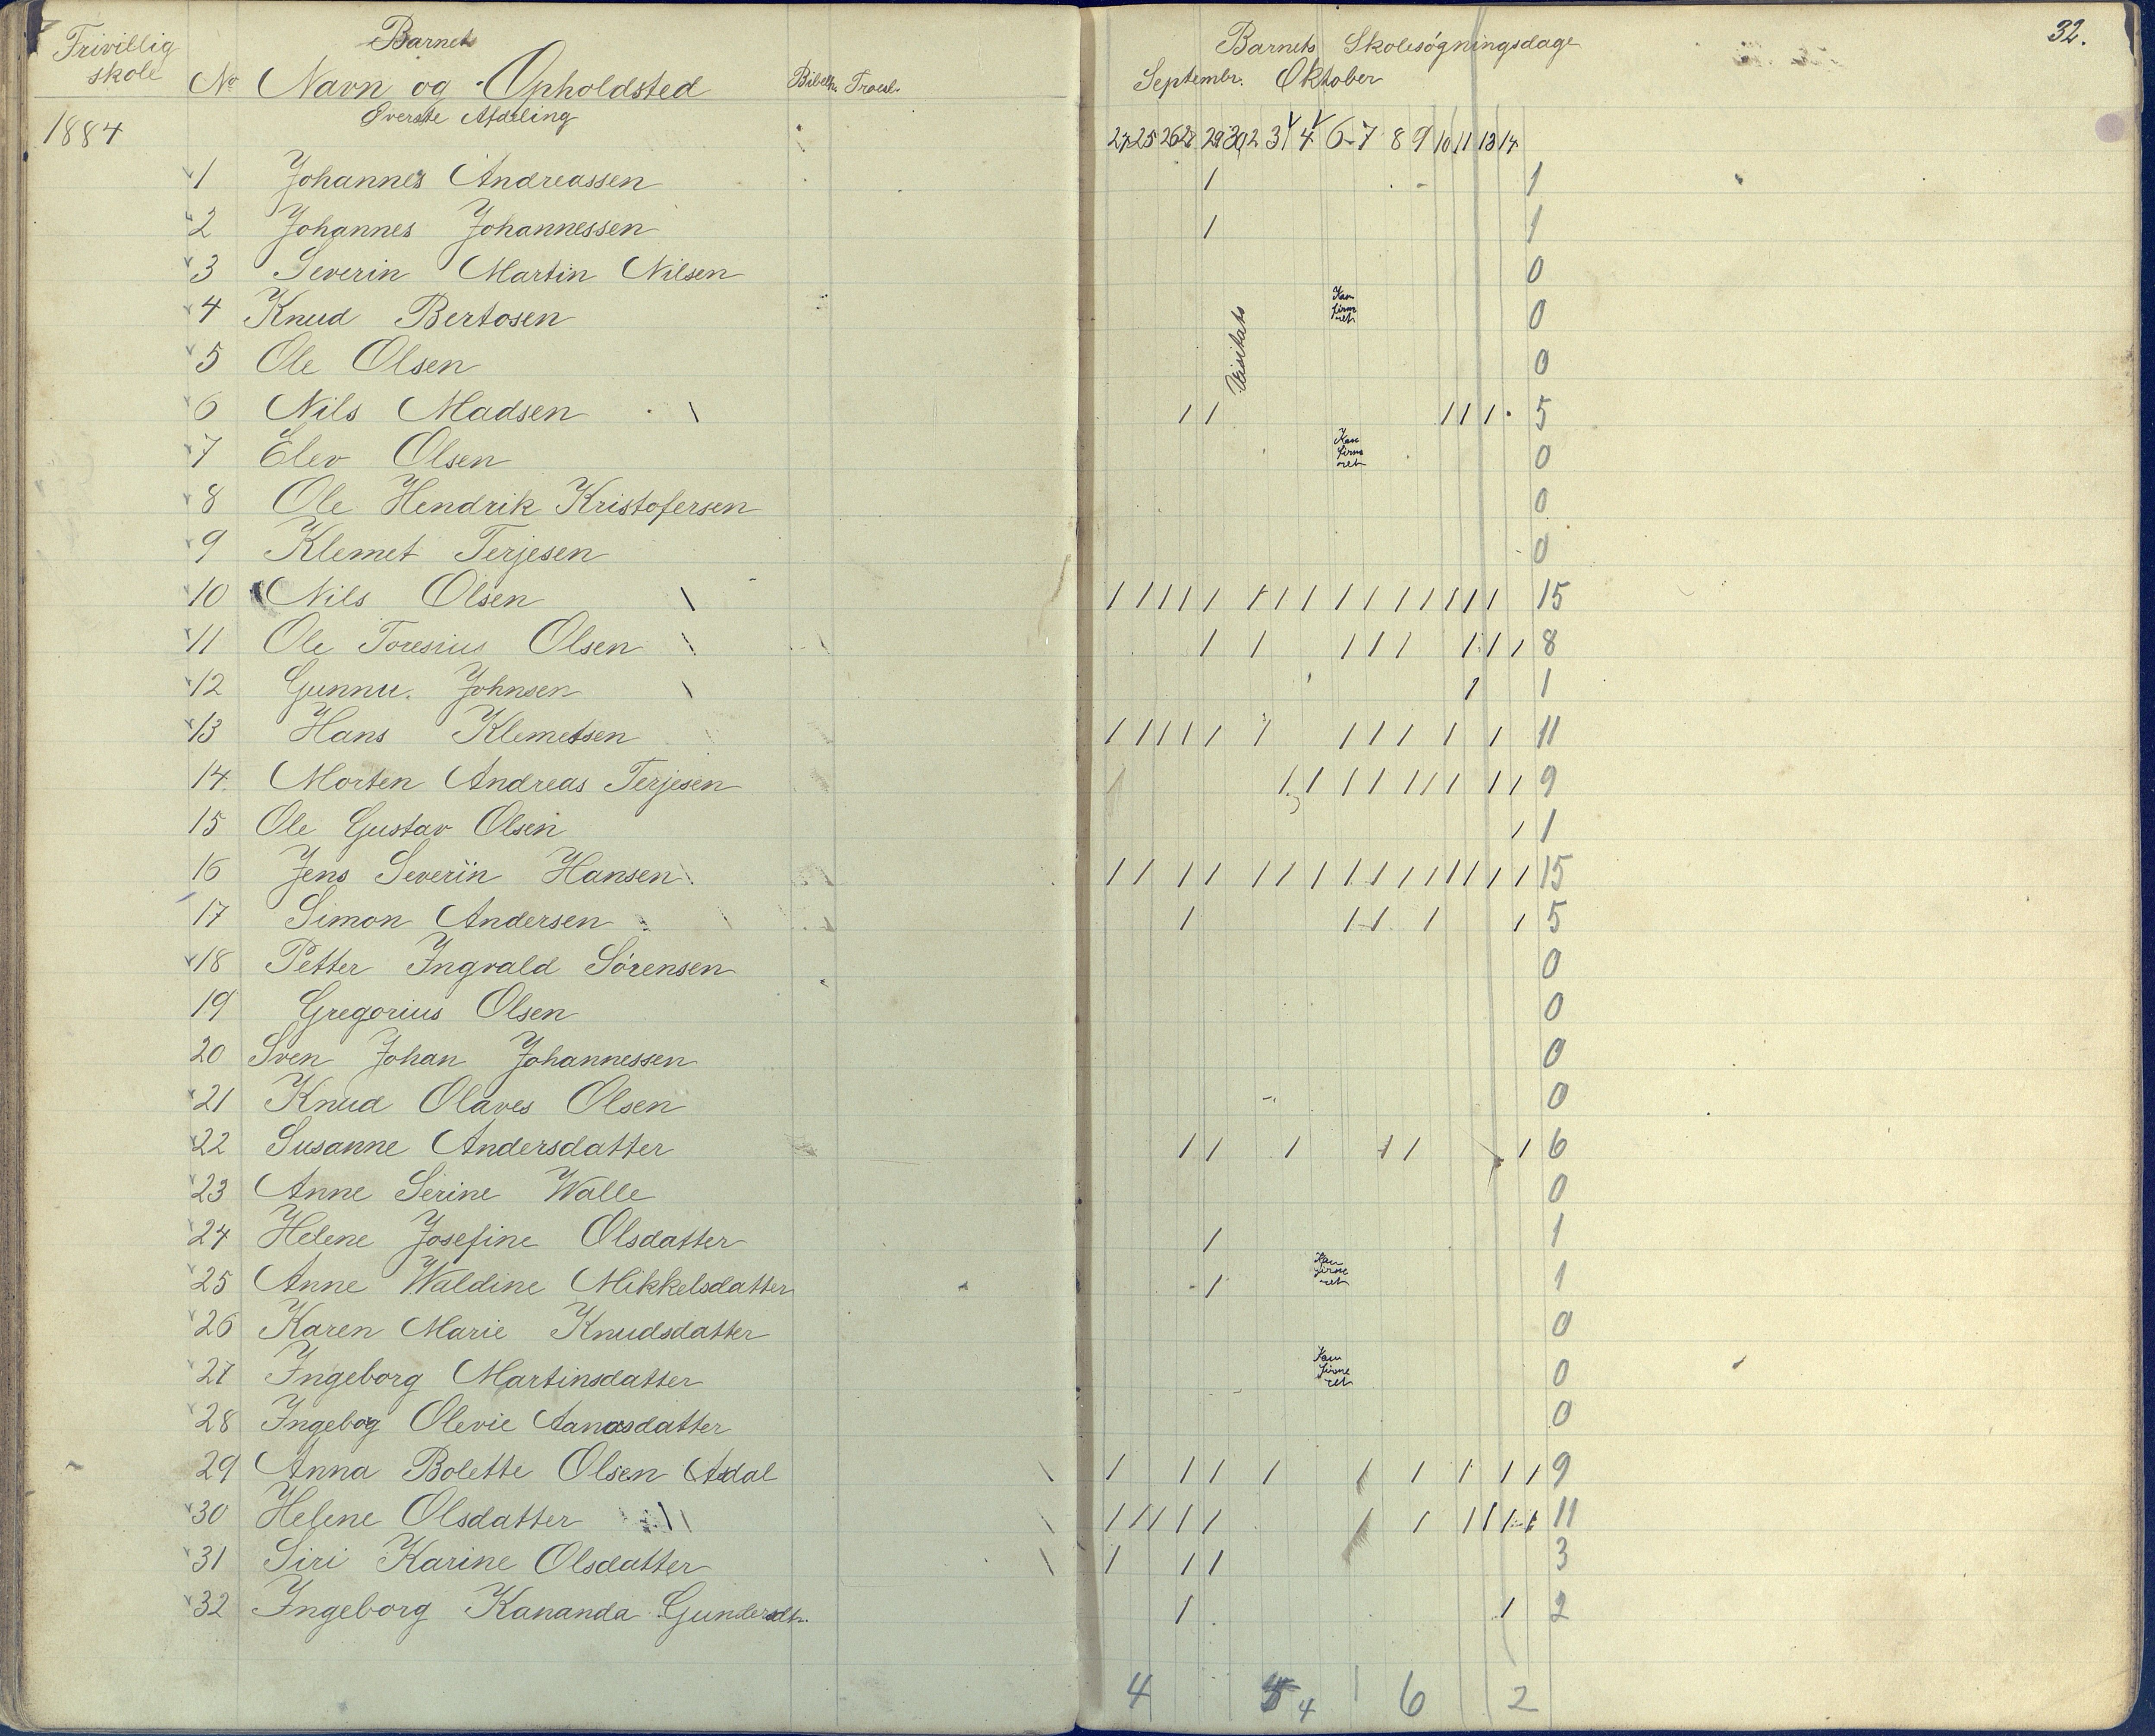 Frivillig skole
Barnets
No Navn og Opholdsted
Øverste Afdeling
1884
1 Johannes Andreassen
2 Johannes Johannessen
3 Severin Martin Nilsen
4 Knud Bertosen
5 Ole Olsen
6 Nils Madsen
7 Elev Olsen
8 Ole Hendrik Kristofersen
9 Klemet Terjesen
10 Nils Olsen
11 Ole Toresius Olsen
12 Gunnu. Johnsen
13 Hans Klemetsen
14. Morten Andreas Terjesen
15 Ole Gustav Olsen
16 Jens Severin Hansen
17 Simon Andersen
18 Petter Ingvald Sørensen
19 Gregorius Olsen
20 Sven Johan Johannessen
21 Knud Olaves Olsen
22 Susanne Andersdatter
23 Anne Serine Walle
24 Helene Josefine Olsdatter
25 Anne Waldine Mikkelsdatter
26 Karen Marie Knudsdatter
27 Ingeborg Martinsdatter
28 Ingebog Olevie Aanasdatter
29 Anna Bolette Olsen Asdal
30 Helene Olsdatter
31 Siri Karine Olsdatter
32 Ingeborg Kananda Gundersdtr.
32.
Barnets Skolesøgningsdage
Septembr. Oktober
24 25 26 27 29 30 2 3 4 6 7 8 9 10 11 13 14
1
1
0
Kon firme ret 0
Visitats
0
1 1 1 1 1 5
Kon firme ret 0
0
0
1 1 1 1 1 1 1 1 1 1 1 1 1 1 1 15
1 1 1 1 1 1 1 1 8
1 1
1 1 1 1 1 1 1 1 1 1 1 11
1 1 1 1 1 1 1 1 1 9
1 1
1 1 1 1 1 1 1 1 1 1 1 1 1 1 1 15
1 1 1 1 1 5
0
0
0
0
1 1 1 1 1 1 6
0
1 1
1 Kon firme ret 1
0
Kon firme ret 0
0
1 1 1 1 1 1 1 1 1 9
1 1 1 1 1 1 1 1 1 1 1 11
1 1 1 3
1 1 2
4 4 6 2